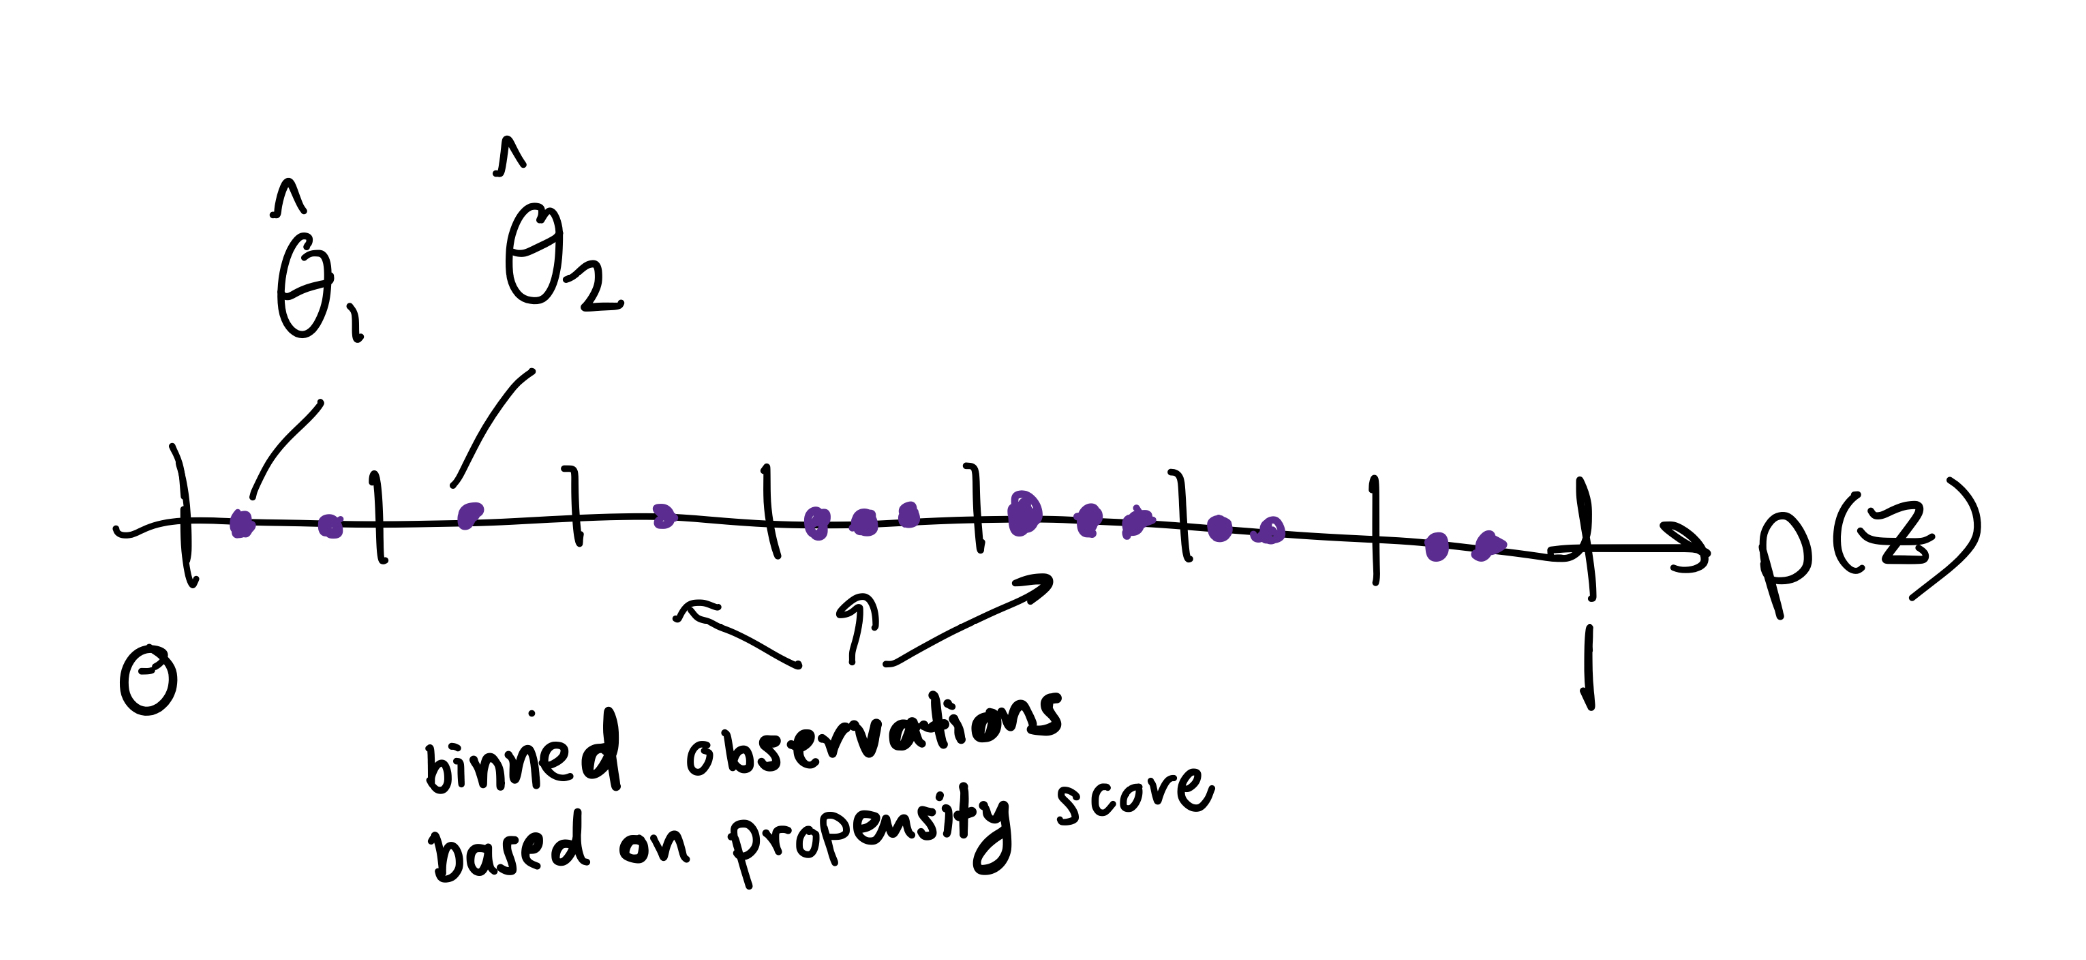 θ̂₁
θ̂₂
p(z)
0
1
binned observations
based on propensity score